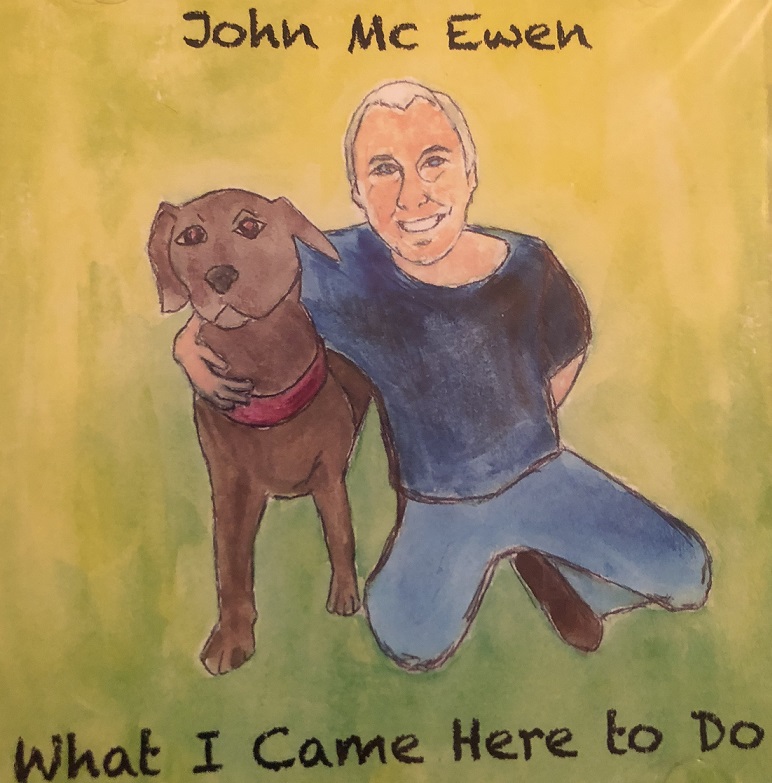 John Mc Ewen
What I Came Here to Do